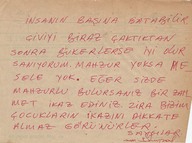 İNSANIN BAŞINA BATABİLİR
ÇİVİYİ BİRAZ ÇAKTIKTAN
SONRA BÜKERLERSE İYİ OLUR
SANIYORUM. MAHZUR YOKSA ME
SELE YOK. EĞER SİZDE
MAHZURLU BULURSANIZ BİR ZAH
MET İKAZ EDİNİZ ZİRA BİZİM
ÇOCUKLARIN İKAZINI DİKKATE
ALMAZ GÖRÜNÜRLER.
SAYGILAR